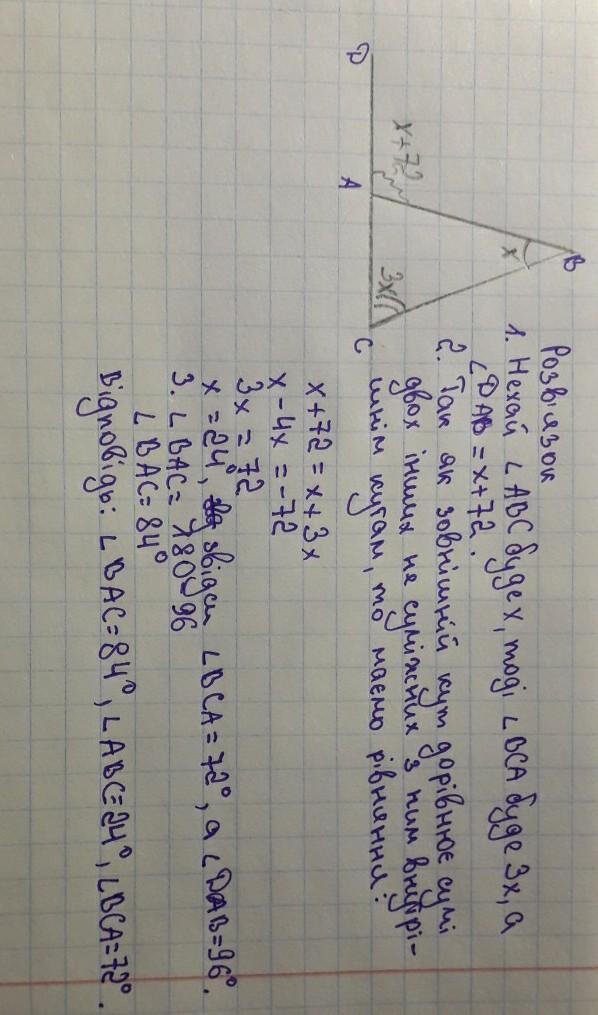 D
A
C
B
x+72
x
3x
Розв'язок
1. Нехай ∠ABC буде x, тоді ∠BCA буде 3x, а
∠DAB = x+72.
2. Так як зовнішній кут дорівнює сумі
двох інших не суміжних з ним внутрі-
шнім кутам, то маємо рівняння:
x+72 = x+3x
x-4x = -72
3x = 72
x = 24°, звідси ∠BCA = 72°, а ∠DAB=96°.
3. ∠BAC = 180-96
∠BAC = 84°
Відповідь: ∠BAC=84°, ∠ABC=24°, ∠BCA=72°.